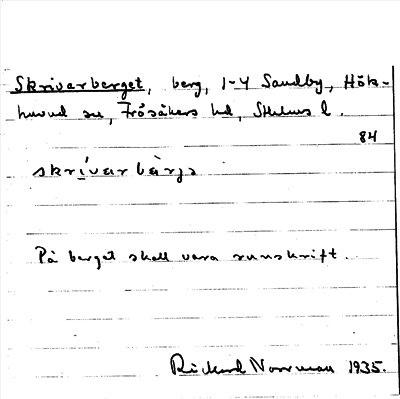 Skrivarberget, berg, 1-4 Sandby, Hök-
huvud sn, Frösåkers hd, Sthlms l.
84
skrívarbàrjə
På berget skall vara runskrift.
Rickard Norrman 1935.